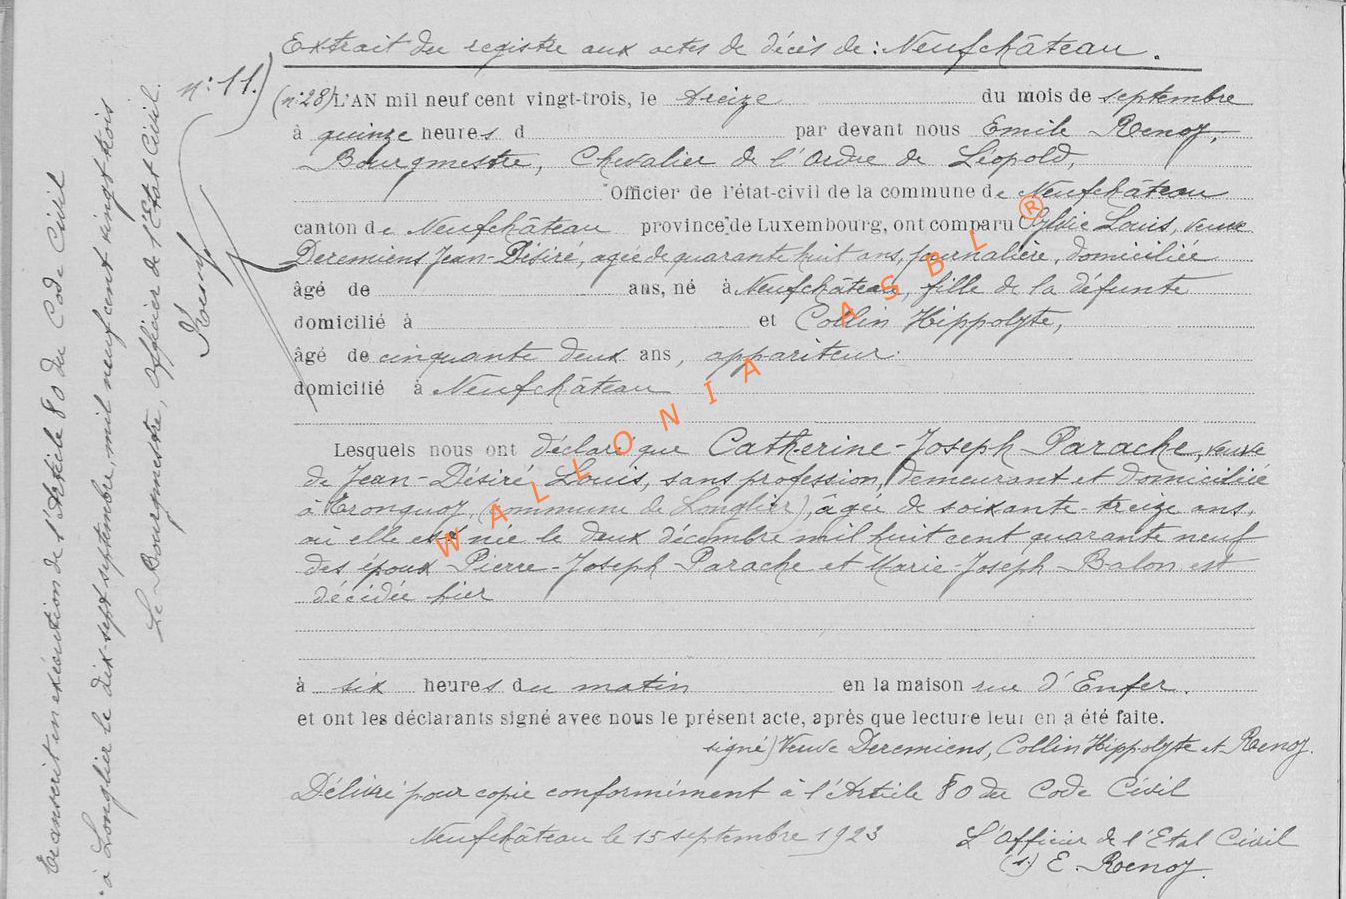 Extrait du registre aux actes de décès de : Neufchâteau.
n: 11.)
(n: 28) L'AN mil neuf cent vingt-trois, le treize du mois de septembre
à quinze heures d par devant nous Emile Roenoy,
Bourgmestre, Chevalier de l'Ordre de Léopold,
Officier de l'état-civil de la commune de Neufchâteau
canton de Neufchâteau province de Luxembourg, ont comparu Sylvie Louis, veuve
Deremiens Jean-Désiré, agée de quarante huit ans, journalière, domiciliée
âgé de ans, né à Neufchâteau, fille de la défunte
domicilié à et Collin Hippolyte,
âgé de cinquante deux ans, appariteur
domicilié à Neufchâteau
Lesquels nous ont déclaré que Catherine-Joseph Parache, veuve
de Jean-Désiré Louis, sans profession, demeurant et domiciliée
à Tronquoy, (commune de Longlier), âgée de soixante-treize ans,
où elle est née le deux décembre mil huit cent quarante neuf
des époux Pierre-Joseph Parache et Marie-Joseph Balon est
décédée hier
à six heures du matin en la maison rue d'Enfer.
et ont les déclarants signé avec nous le présent acte, après que lecture leur en a été faite.
signé) Veuve Deremiens, Collin Hippolyte et Roenoy.
Délivré pour copie conformément à l'Article 80 du Code Civil
Neufchâteau le 15 septembre 1923
L'Officier de l'Etat Civil
(s.) E. Roenoy.
Transcrit en exécution de l'Article 80 du Code Civil
à Longlier le dix-sept septembre mil neuf cent vingt trois
Le Bourgmestre, Officier de l'Etat Civil.
WALLONIA ASBL ®